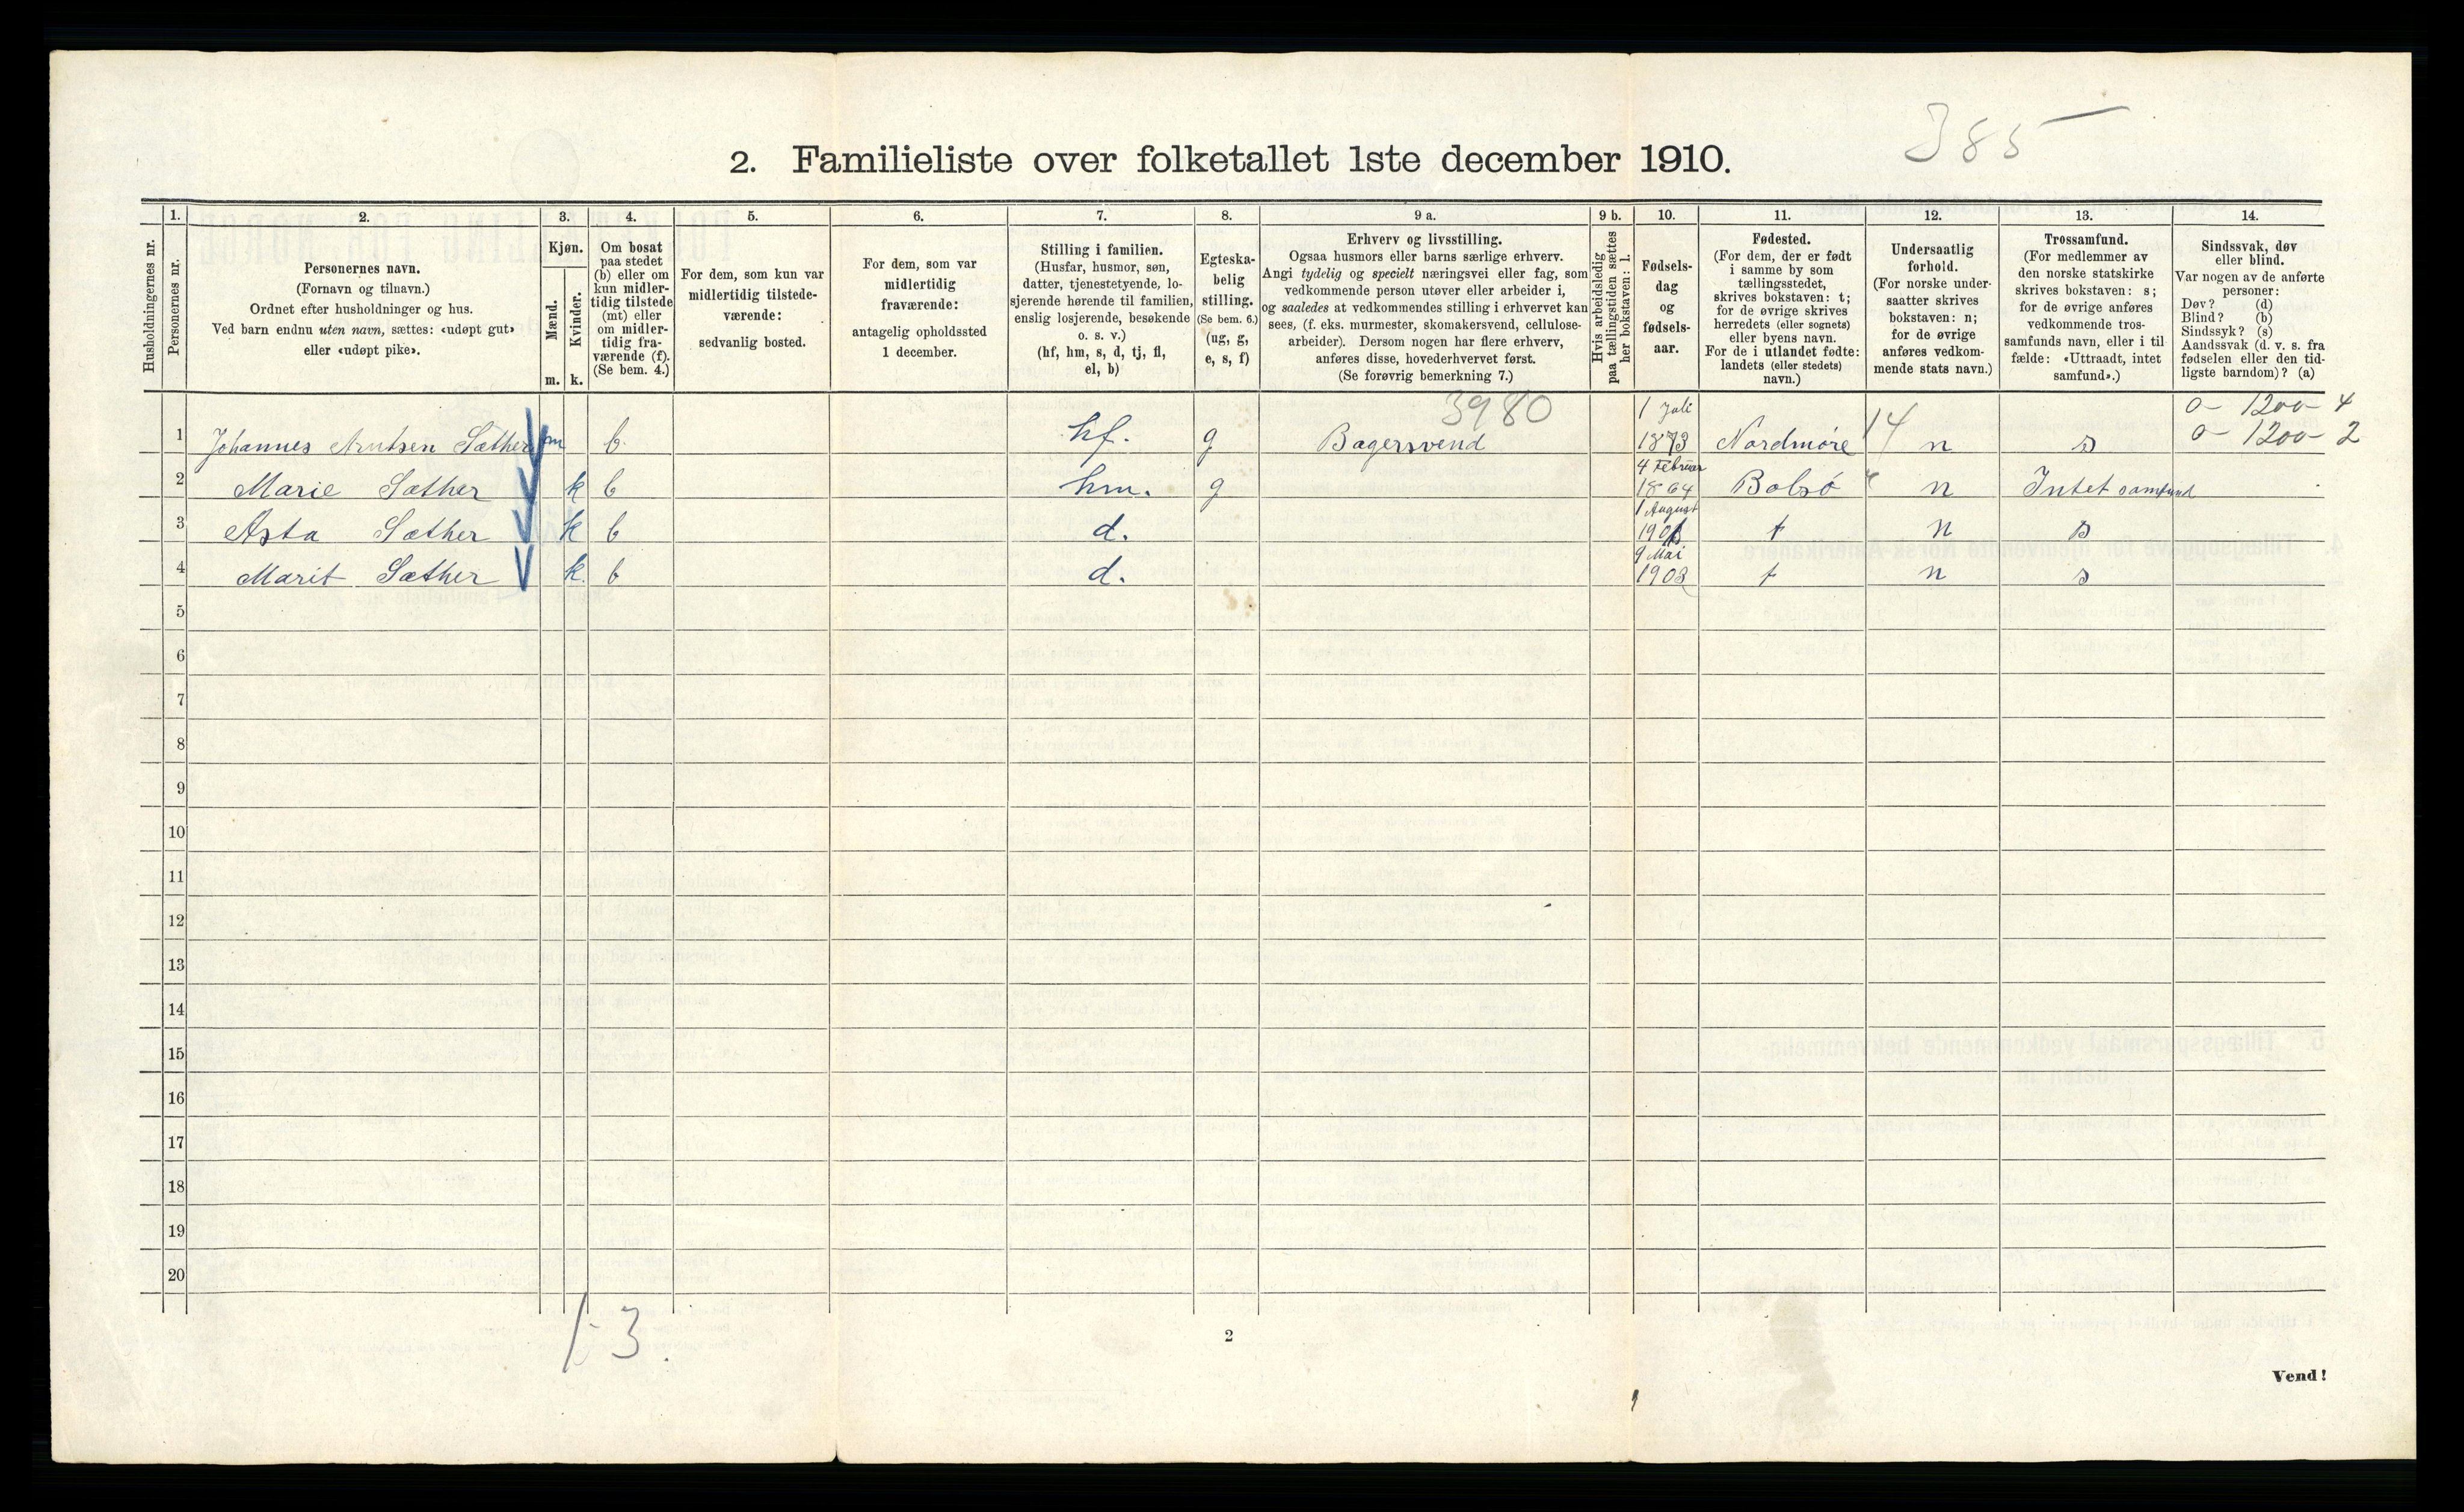 385
2. Familieliste over folketallet 1ste december 1910.
Husholdningernes nr.
1.
Personernes nr.
2.
Personernes navn.
(Fornavn og tilnavn.)
Ordnet efter husholdninger og hus.
Ved barn endnu uten navn, sættes: «udøpt gut»
eller «udøpt pike».
3.
Kjøn.
Mænd.
Kvinder.
m. k.
4.
Om bosat
paa stedet
(b) eller om
kun midler-
tidig tilstede
(mt) eller
om midler-
tidig fra-
værende (f).
(Se bem. 4.)
5.
For dem, som kun var
midlertidig tilstede-
værende:
sedvanlig bosted.
6.
For dem, som var
midlertidig
fraværende:
antagelig opholdssted
1 december.
7.
Stilling i familien.
(Husfar, husmor, søn,
datter, tjenestetyende, lo-
sjerende hørende til familien,
enslig losjerende, besøkende
o. s. v.)
(hf, hm, s, d, tj, fl,
el, b)
8.
Egteska-
belig
stilling.
(Se bem. 6.)
(ug, g,
e, s, f)
9 a.
Erhverv og livsstilling.
Ogsaa husmors eller barns særlige erhverv.
Angi tydelig og specielt næringsvei eller fag, som
vedkommende person utøver eller arbeider i,
og saaledes at vedkommendes stilling i erhvervet kan
sees, (f. eks. murmester, skomakersvend, cellulose-
arbeider). Dersom nogen har flere erhverv,
anføres disse, hovederhvervet først.
(Se forøvrig bemerkning 7.)
9 b.
Hvis arbeidsledig
paa tællingstiden sættes
her bokstaven: l.
10.
Fødsels-
dag
og
fødsels-
aar.
11.
Fødested.
(For dem, der er født
i samme by som
tællingsstedet,
skrives bokstaven: t;
for de øvrige skrives
herredets (eller sognets)
eller byens navn.
For de i utlandet fødte:
landets (eller stedets)
navn.)
12.
Undersaatlig
forhold.
(For norske under-
saatter skrives
bokstaven: n;
for de øvrige
anføres vedkom-
mende stats navn.)
13.
Trossamfund.
(For medlemmer av
den norske statskirke
skrives bokstaven: s;
for de øvrige anføres
vedkommende tros-
samfunds navn, eller i til-
fælde: «Uttraadt, intet
samfund».)
14.
Sindssvak, døv
eller blind.
Var nogen av de anførte
personer:
Døv? (d)
Blind? (b)
Sindssyk? (s)
Aandssvak (d. v. s. fra
fødselen eller den tid-
ligste barndom)? (a)
3980
1 Juli
0- 1200- 4
1 Johannes Arntsen Sæther m b hf. g Bagersvend 1873 Nordmøre 14 n s 0- 1200- 2
4 Februar
2 Marie Sæther k b hm. g 1864 Bolsø n Intet samfund
1 August
3 Asta Sæther k b d. t n s
9 Mai
4 Marit Sæther k. b d. 1903 t n s
5
6
7
8
9
10
11
12
13
14
15
16
17
18
19
20
1-3.
2
Vend!